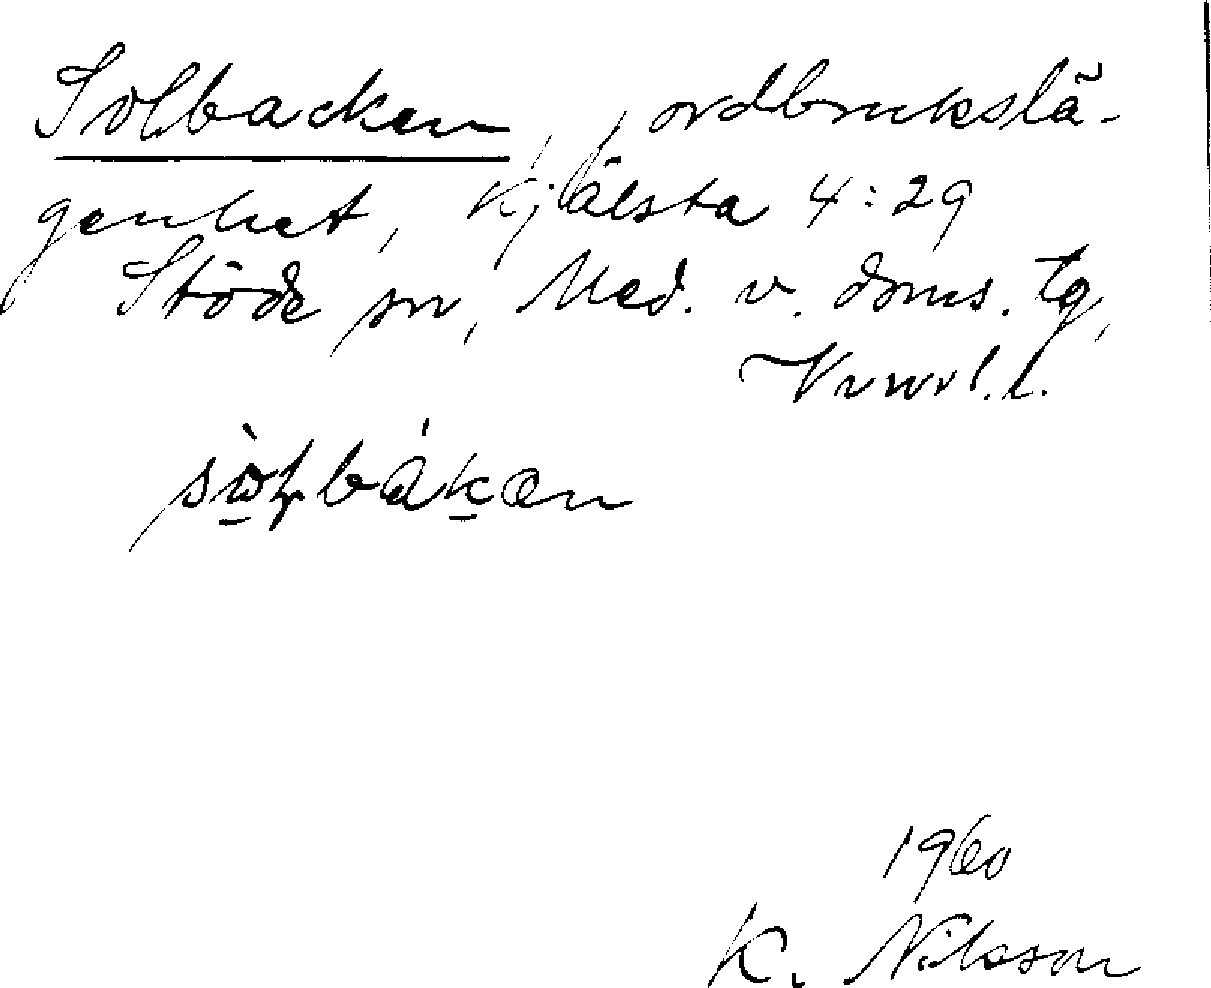 Solbacken, jordbrukslä-
genhet, Kjälsta 4:29
Stöde sn, Med. v. doms. tg,
Vnorl. l.
sòlbákan
1960
K. Nilsson